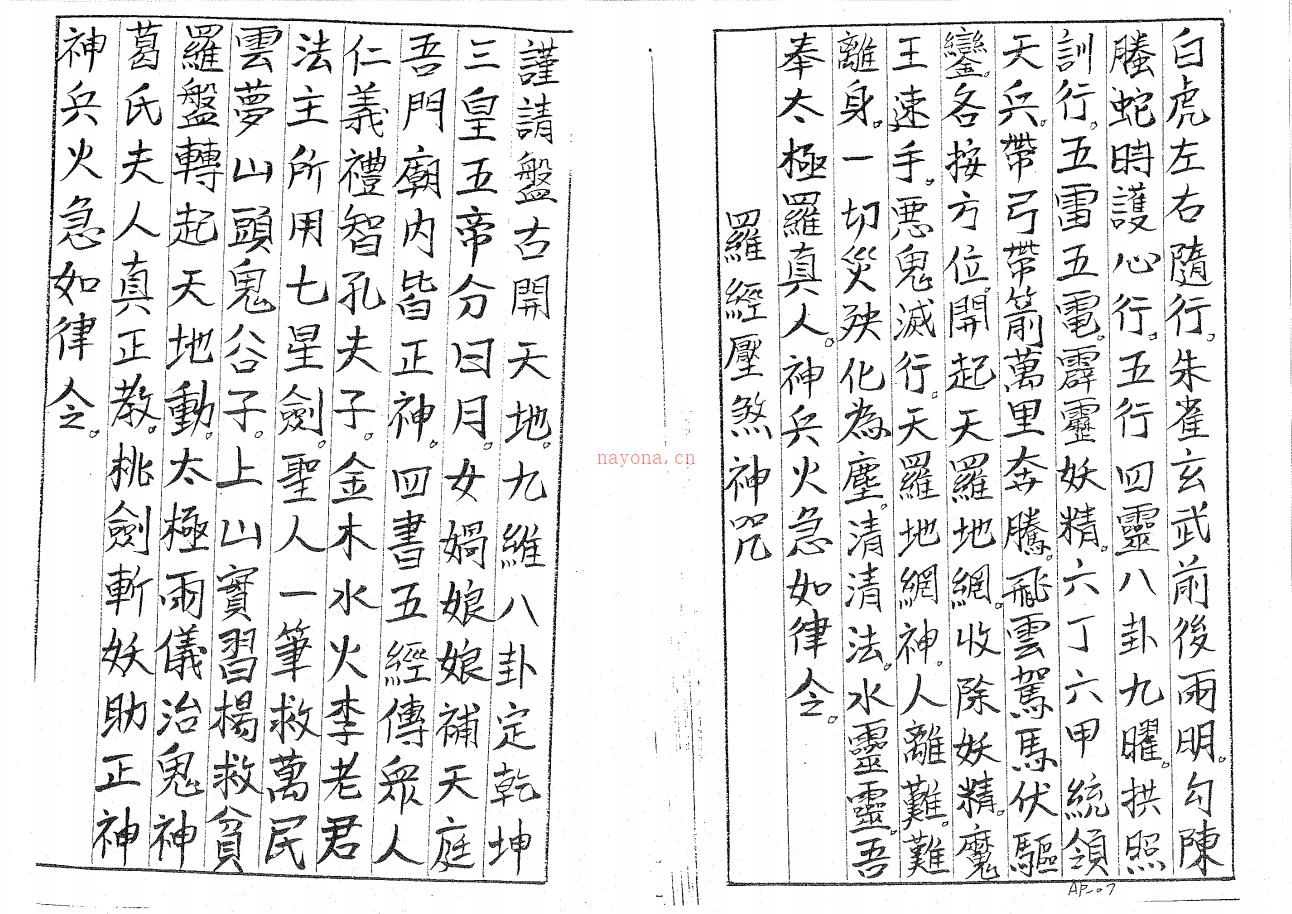 白虎左右隨行。朱雀玄武前後雨明。勾陳
螣蛇時護心行。五行四靈八卦九曜。拱照
訓行。五雷五電。霹靂妖精。六丁六甲統領
天兵。帶弓帶箭萬里奔騰。飛雲駕馬伏驅
鑾。各按方位。開起天羅地網。收除妖精。魔
王速手。悪鬼滅行。天羅地網神。人離難。難
離身。一切災殃化為塵。清清法。水靈靈。吾
奉太極羅真人。神兵火急如律令。
羅經壓煞神咒
謹請盤古開天地。九維八卦定乾坤
三皇五帝分日月。女媧娘娘補天庭
吾門廟内皆正神。四書五經傳眾人
仁義禮智孔夫子。金木水火李老君
法主所用七星劍。聖人一筆救萬民
雲夢山頭鬼谷子。上山實習楊救貧
羅盤轉起天地動。太極兩儀治鬼神
葛氏夫人真正教。桃劍斬妖助正神
神兵火急如律令。
nayona.cn
AP-07